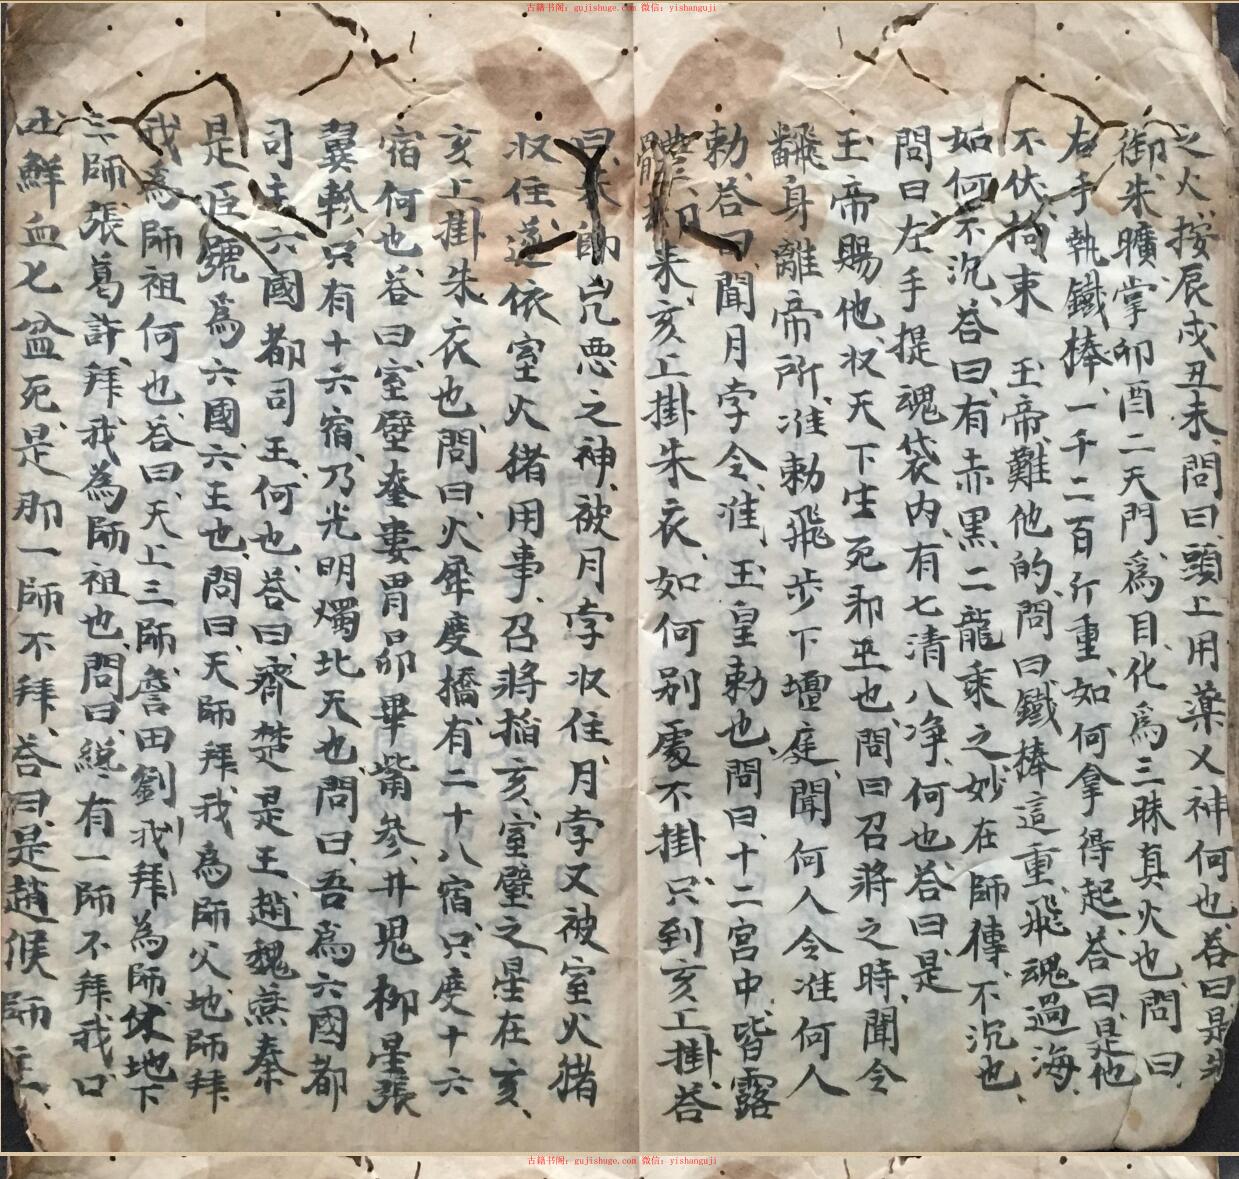 古籍书阁：gujishuge.com 微信：yishanguji
之火按辰戌丑未、問曰、頭上用藥乂神何也、答曰、是
御朱曠掌卯酉二天門、為目、化為三昧真火也、問曰、
右手執鐵棒、一千二百斤重、如何拿得起、答曰、是他
不伏拘束 玉帝難他的、問曰、鐵捧這重、飛魂過海、
如何不沉、答曰、有赤黑二龍乘之妙在師傳、不沉也、
問曰左手提魂袋内、有七清八净、何也、答曰、是
玉帝賜他、收天下生死邪巫也、問曰召將之時、聞令
飜身離帝所、准勅飛步下壇庭、聞何人令准何人
勅、答曰、聞月孛令、准玉皇勅也、問曰、十二宮中、皆露
體、朱亥上掛朱衣、如何别處不掛、只到亥上掛、答
曰、朱帥兇恶之神、被月孛收住、月孛又被室火猪
收住、遂依室火猪用事、召將掐亥、室壁之星在亥、
亥上掛朱衣也、問曰火犀度橋、有二十八宿、只度十六
宿何也、答曰、室壁奎婁胃昴畢觜參、井鬼柳星張
翼軫、只有十六宿、乃光明燭北天也、問曰、吾為六國都
司主六國都司王、何也、答曰、齊楚是王、趙魏燕秦
是臣號為六國六王也、問曰、天師拜我為師父、地師拜
我為師祖何也、答曰、天上三師、詹田劉、我拜為師、地下
三師、張葛許、拜我為師祖也、問曰、総有一師不拜我、口
吐鮮血七盆死、是那一師不拜、答曰、是趙候師
古籍书阁：gujishuge.com 微信：yishanguji